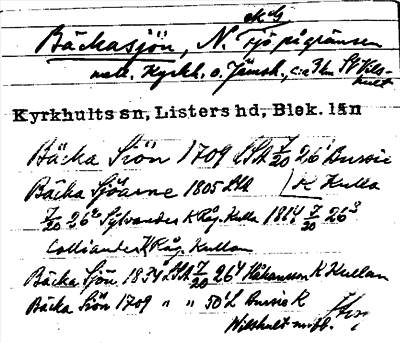 Bäckasjön, N. Sjö på gränsen
mell. Kyrkh. o. Jämsh., c:a 3 km SV Vils-
hult
Kyrkhults sn, Listers hd, Blek. län
Bäcka Siön 1709 LSA 7/20 26¹ Bussie
Bäcka Sjöarne 1805 LSA K Kulla
7/20 26² Sylvander K Råg. Kulla 1814 7/20 26³
Colliander K Råg. Kullan
Bäcka Sjön 1834 LSA 7/20 26⁴ Håkansson K Kullan
Bäcka Siön 1709 " " 50¹ L Bussie K
Vilshult